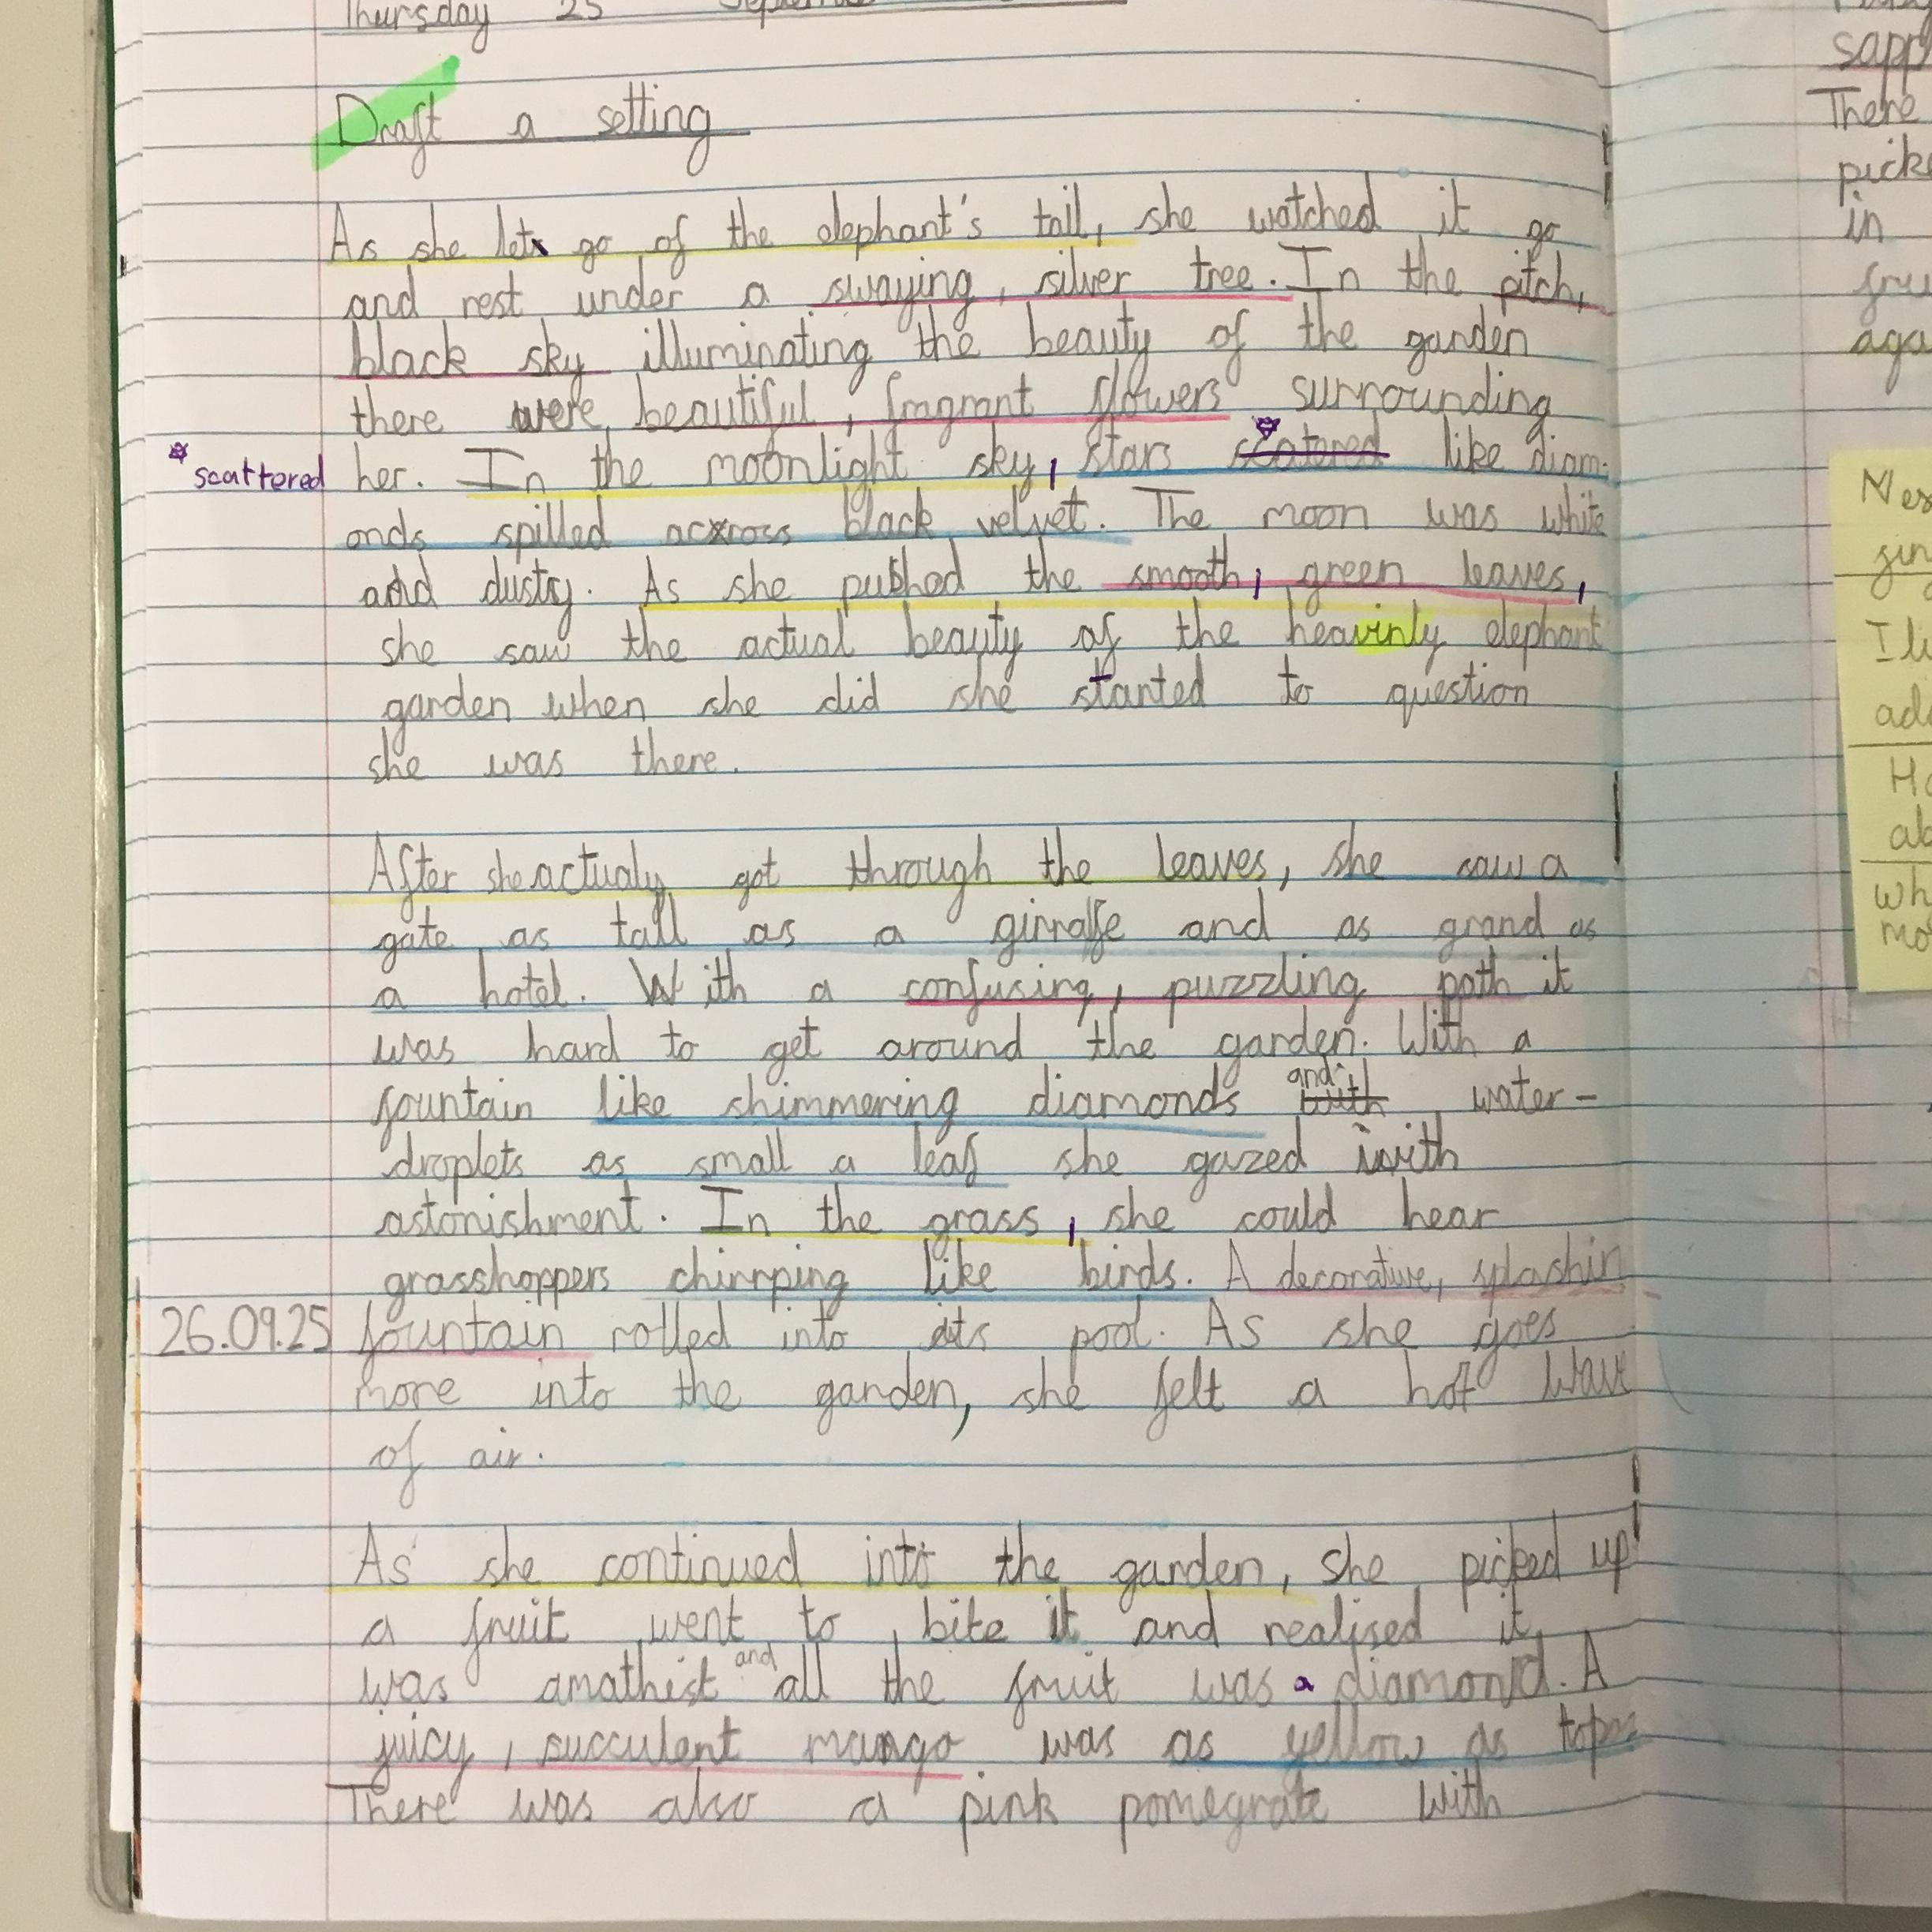 Thursday 25 September
Draft a setting
As she lets go of the elephant's tail, she watched it go
and rest under a swaying, silver tree. In the pitch,
black sky illuminating the beauty of the garden
there were beautiful, fragrant flowers surrounding
her. In the moonlight sky, stars scatered like diam-
* scattered
onds spilled across black velvet. The moon was white
and dusty. As she pushed the smooth, green leaves,
she saw the actual beauty of the heavinly elephant
garden when she did she started to question
she was there.
After she actualy got through the leaves, she saw a
gate as tall as a girraffe and as grand as
a hotel. With a confusing, puzzling path it
was hard to get around the garden. With a
fountain like shimmering diamonds with and water-
droplets as small a leaf she gazed with
astonishment. In the grass, she could hear
grasshoppers chirrping like birds. A decorative, splashin
26.09.25 fountain rolled into its pool. As she goes
more into the garden, she felt a hot wave
of air.
As she continued into the garden, she picked up
a fruit went to bite it and realised it
was amathist and all the fruit was a diamond. A
juicy, succulent mango was as yellow as topaz
There was also a pink pomegrate with
There
picke
in
fru
aga
I li